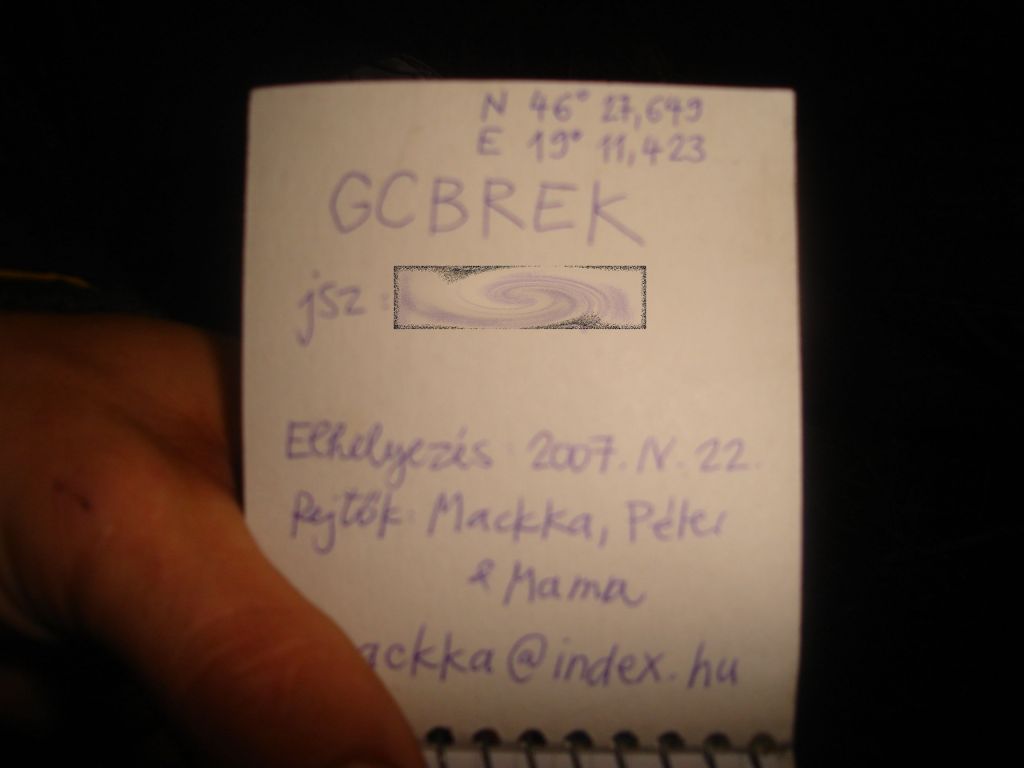 N 46° 27,649
E 19° 11,423
GCBREK
jsz:
Elhelyezés: 2007. IV. 22.
Rejtők: Mackka, Péter
& Mama
ackka@index.hu